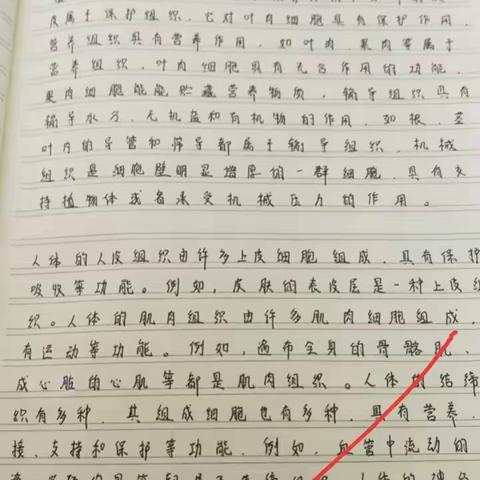 皮属于保护组织，它对叶肉细胞具有保护作用，
营养组织具有营养作用，如叶肉、果肉等属于
营养组织，叶肉细胞具有光合作用的功能，
果肉细胞能贮藏营养物质，输导组织具有
输导水分、无机盐和有机物的作用，如根、茎
叶内的导管和筛导都属于输导组织，机械
组织是细胞壁明显增厚的一群细胞，具有支
持植物体或者承受机械压力的作用。
人体的人皮组织由许多上皮细胞组成，具有保护
吸收等功能。例如，皮肤的表皮层是一种上皮组
织。人体的肌肉组织由许多肌肉细胞组成，
有运动等功能。例如，遍布全身的骨骼肌、
成心脏的心肌等都是肌肉组织。人体的结缔
织有多种，其组成细胞也有多种，具有营养、
接、支持和保护等功能，例如，血管中流动的